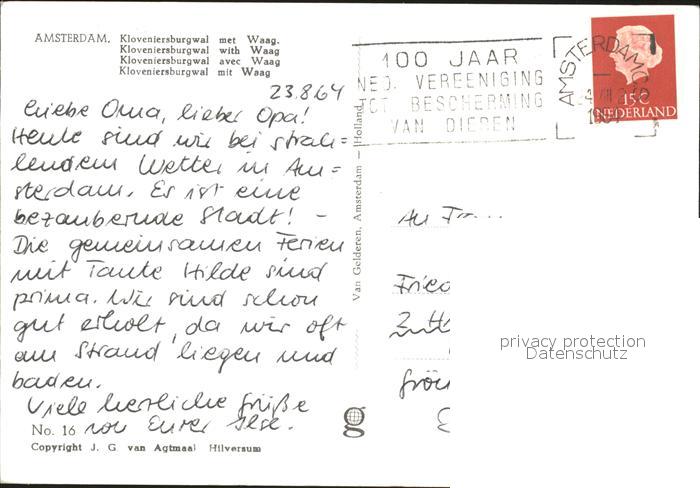 AMSTERDAM. Kloveniersburgwal met Waag.
Kloveniersburgwal with Waag
Kloveniersburgwal avec Waag
Kloveniersburgwal mit Waag
23.8.64
Liebe Oma, lieber Opa!
Heute sind wir bei strah=
lendem Wetter in Am=
sterdam. Es ist eine
bezaubernde Stadt! -
Die gemeinsamen Ferien
mit Tante Hilde sind
prima. Wir sind schon
gut erholt, da wir oft
am Strand liegen und
baden.
Viele herzliche Grüße
von Eurer Ilse.
No. 16
Copyright J. G. van Agtmaal Hilversum
Van Gelderen, Amsterdam - Holland
100 JAAR
NED. VEREENIGING
TOT BESCHERMING
VAN DIEREN
AMSTERDAM
15c
NEDERLAND
An
privacy protection
Datenschutz